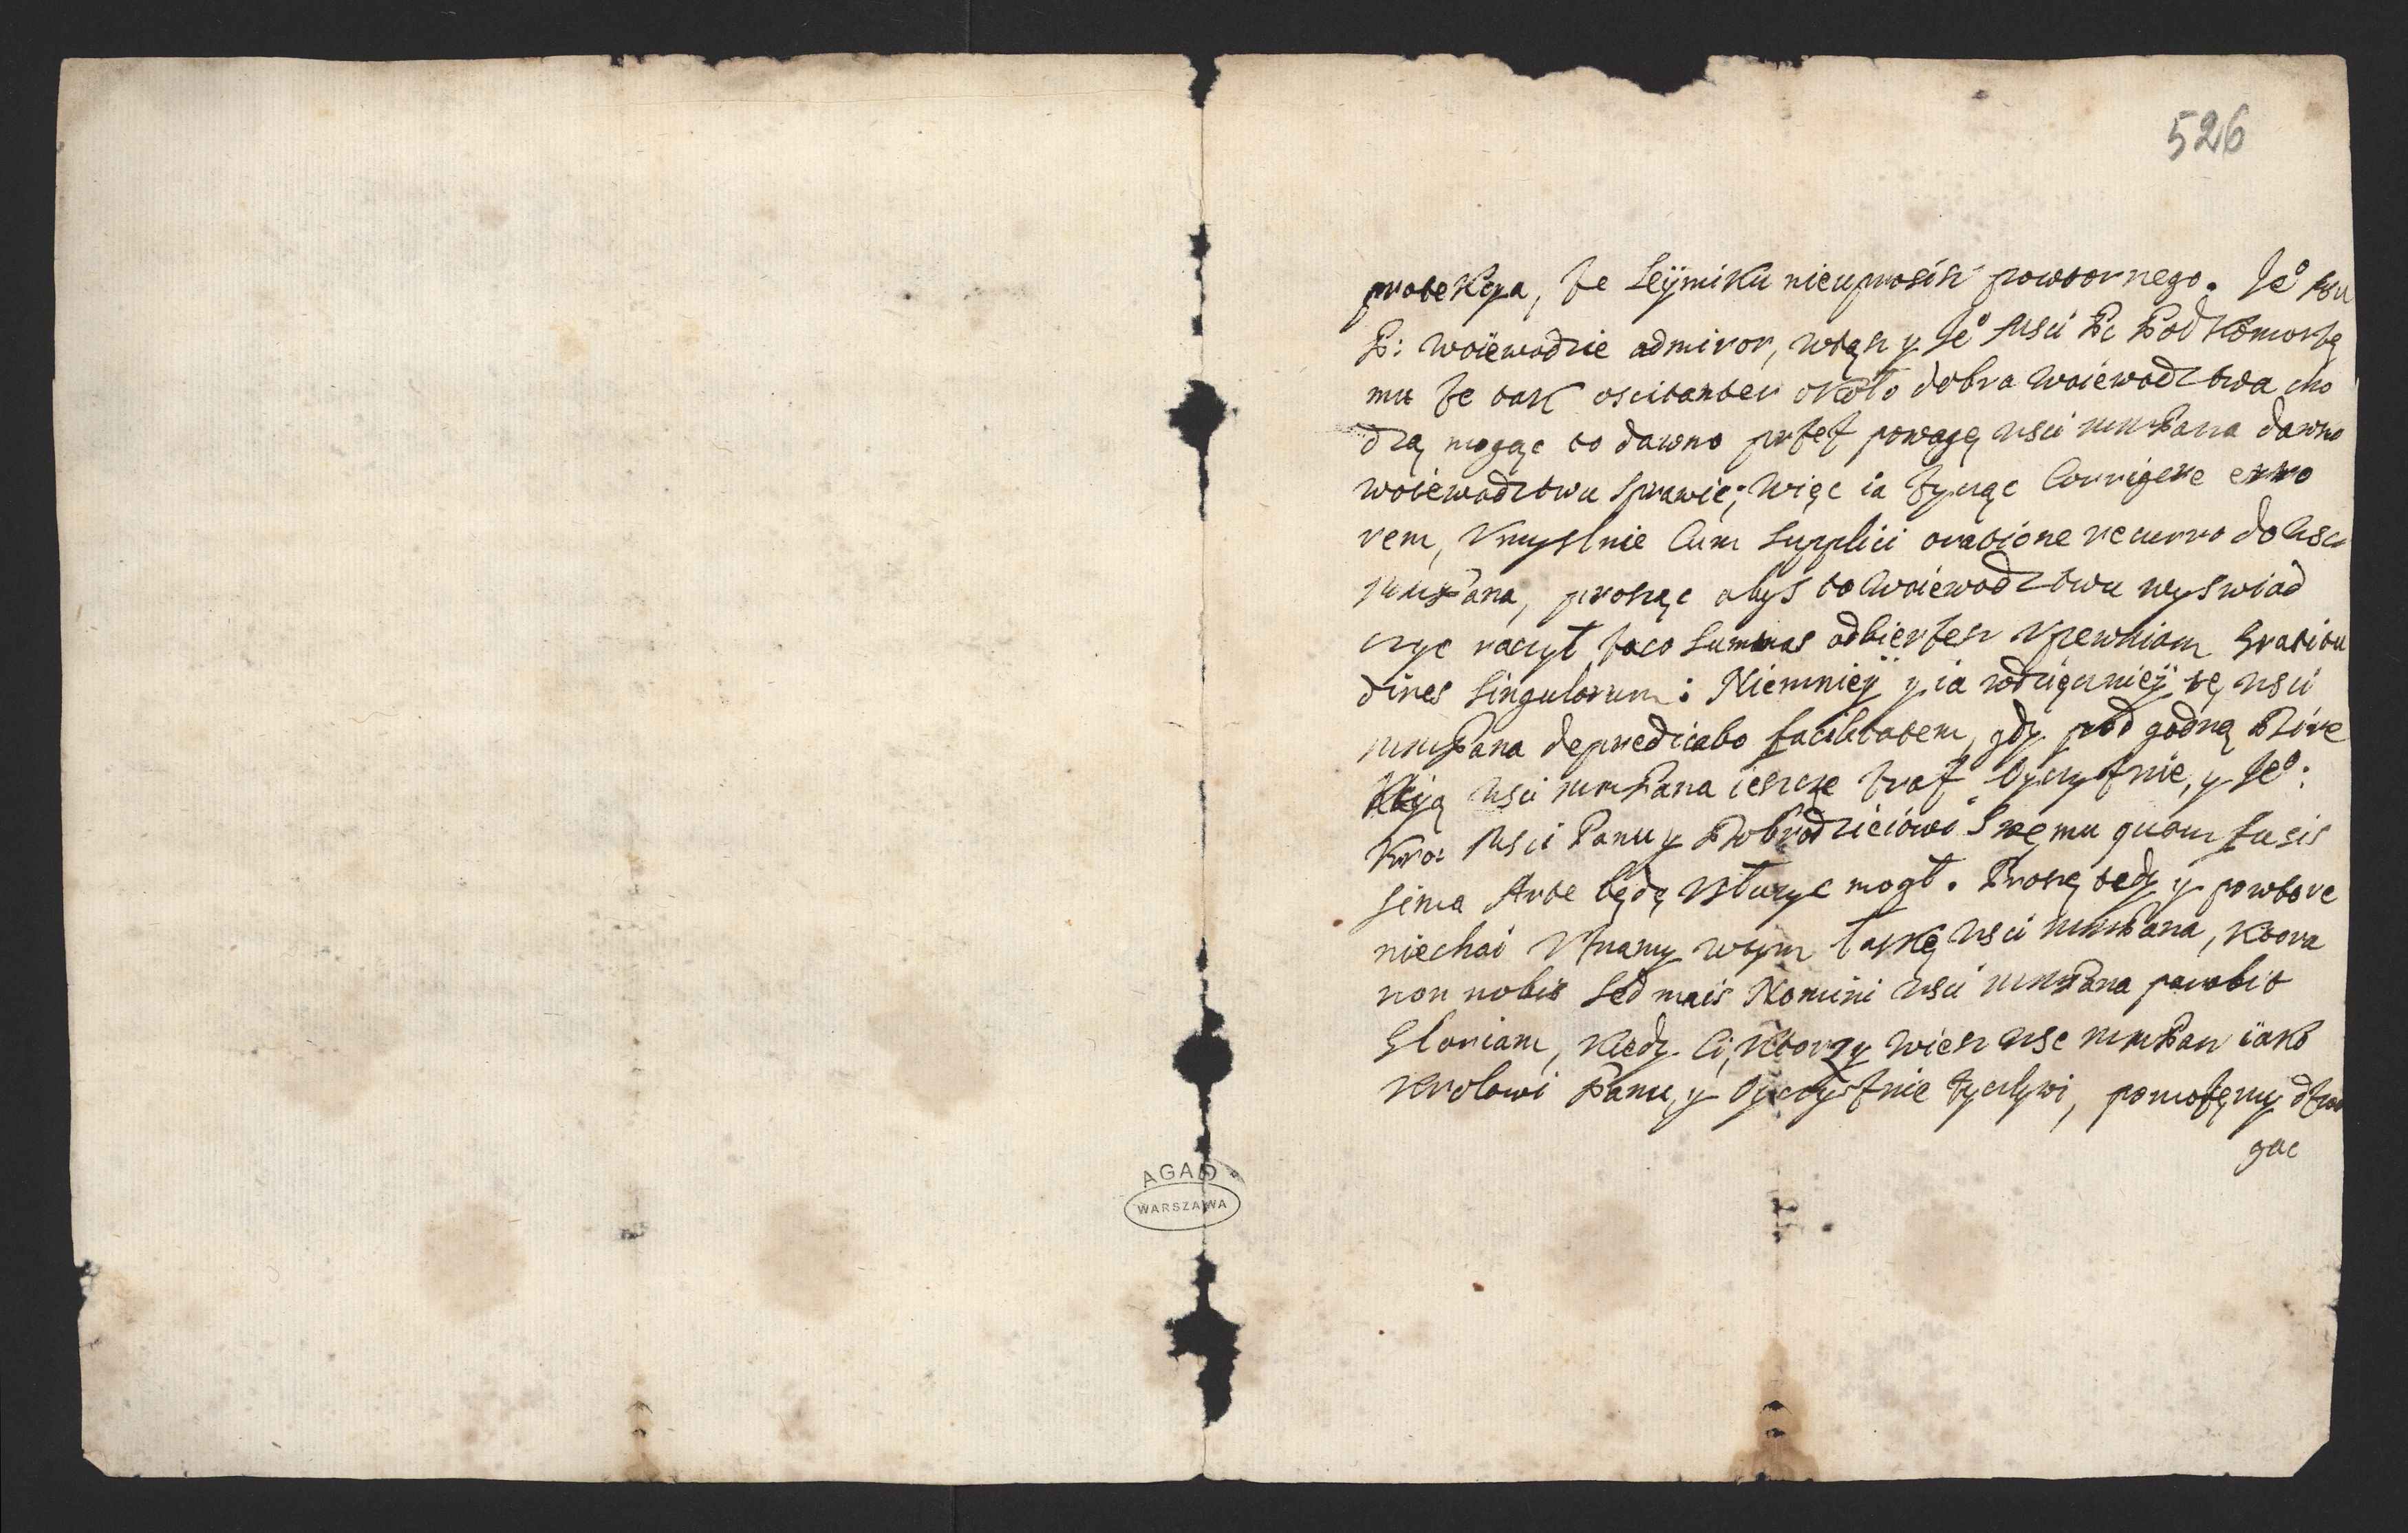 526
protekcya, że Seÿmiku nieuprosisz powtornego. Je͞o Msci
P: woiewodzie admiror, wtąsz y Je͞o Msci Pc Podkomorzę
mu że tak oscitanter około dobra woiewodztwa cho
dzą mogąc to dawno przez powagę wsci mmPana dawno
woiewodztwu sprawić; Więc ia życząc Corrigere erro
rem, Vmyslnie Cum supplici oratione recurro do wsci
mmPana, prosząc abys to Woiewodztwu wyswiad
czyc raczył, zaco summas odbierzesz vpewniam Gratitu
dines singulorum: Niemnieÿ y ia wdzięcznieÿ tę wsci
mmPana depredicabo facilitatem, gdy pod godną Dire
kcyą wsci mmPana ieszcze traf Oyczyznie, y Je͞o:
Kro: Msci Panu y Dobrodzieiowi Swemu quam fusis
sima Arte będę vsłuzyc mogł. Proszę tedy y powtore
niechai vznamy wtym łaskę wsci mmPana, ktora
non nobis sed magis Nomini wsci mmPana parabit
Gloriam, kiedy ci, ktorzy wiesz wsc mmPan iako
krolowi Panu, y Oyczyznie życzlywi, pomożemy dzwi
gac
AGAD
WARSZAWA